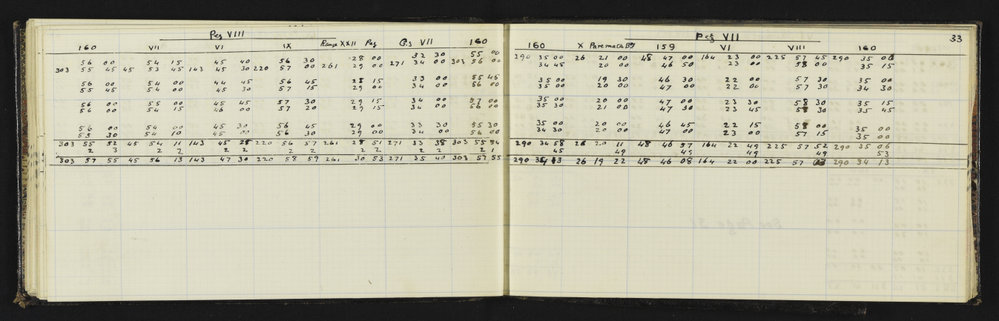 Peg VIII
160 VII VI IX Range XXII Peg Peg VII 160
56 00 54 15 45 40 56 30 28 00 33 30 55 00
303 55 45 45 53 45 143 45 30 220 57 00 261 29 00 271 34 00 303 56 00
56 00 54 00 44 45 56 45 28 15 33 00 55 45
55 45 54 00 45 30 57 15 29 00 34 00 56 00
56 00 55 00 45 45 57 30 29 15 34 00 57 00
56 00 54 15 46 00 57 20 29 15 34 00 56 00
56 00 54 00 45 30 56 45 29 00 33 30 55 30
55 30 54 10 45 00 56 30 29 00 34 00 56 00
303 55 52 45 54 11 143 45 28 220 56 57 261 28 51 271 33 38 303 55 54
2 3 2 2 2 2 2 2 2 2 2 2 2 1
303 57 55 45 56 13 143 47 30 220 58 59 261 30 53 271 35 40 303 57 55
33
Peg VII
160 X Paremata 159 VI VIII 160
290 35 00 26 21 00 48 47 00 164 23 00 225 57 45 290 35 00
34 45 20 00 46 50 23 00 58 00 35 15
35 00 19 30 46 30 22 00 57 30 35 00
35 00 20 00 47 00 22 00 57 30 34 30
35 00 20 00 47 00 23 30 58 30 35 15
35 30 21 00 47 30 23 45 58 30 35 45
35 00 20 00 46 45 22 15 58 00 35 00
34 30 20 00 47 00 23 00 57 15 35 00
290 34 58 26 20 11 48 46 57 164 22 49 225 57 52 290 35 06
45 49 49 49 49 53
290 34 13 26 19 22 48 46 08 164 22 00 225 57 03 290 34 13